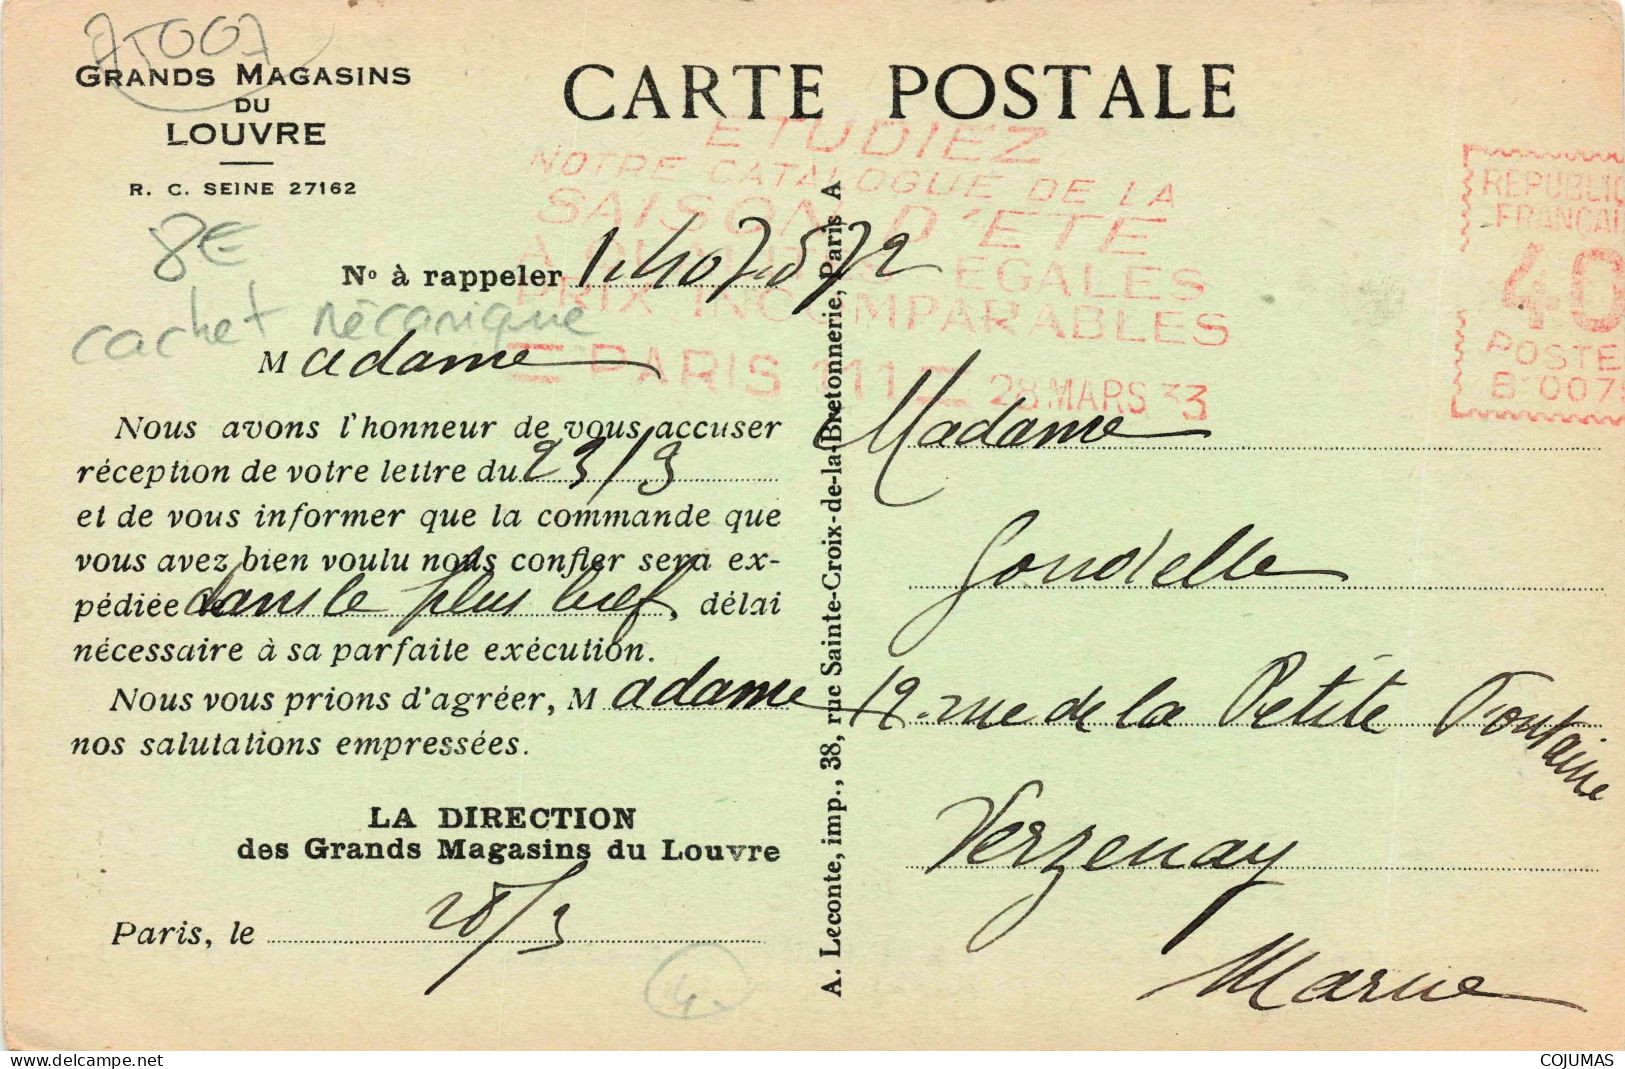 75007
GRANDS MAGASINS
DU
LOUVRE
R. C. SEINE 27162
8€
cachet mécanique
CARTE POSTALE
ETUDIEZ
NOTRE CATALOGUE DE LA
SAISON D'ETE
EGALES
PRIX INCOMPARABLES
PARIS 111 28 MARS 33
REPUBLIQ
FRANCAI
40
POSTE
B 007
Nº à rappeler
Madame
Nous avons l'honneur de vous accuser
réception de votre lettre du 23/3
et de vous informer que la commande que
vous avez bien voulu nous confier sera ex-
pédiée dans le plus bref, délai
nécessaire à sa parfaite exécution.
Nous vous prions d'agréer, Madame
nos salutations empressées.
LA DIRECTION
des Grands Magasins du Louvre
Paris, le 28/3
A. Leconte, imp., 38, rue Sainte-Croix-de-la-Bretonnerie, Paris A
Madame
Gondelle
12 rue de la Petite Fontaine
Verzenay
Marne
COJUMAS